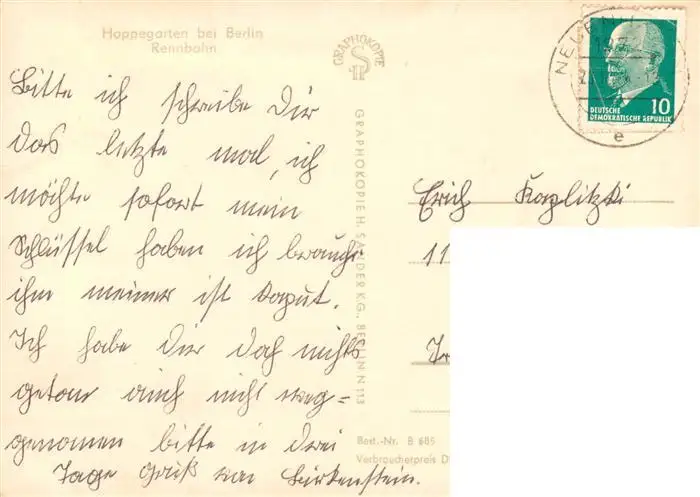 Hoppegarten bei Berlin
Rennbahn
GRAPHOKOPIE
Bitte ich schreibe Dir
das letzte mal, ich
möchte sofort mein
Schlüssel haben ich brauche
ihn meiner ist kaput.
Ich habe Dir doch nichts
getan auch nicht weg=
genomen bitte in drei
Tage Gruß von Birkenstein.
GRAPHOKOPIE H. SANDER K.G. BERLIN N 113
NEUEN
10
DEUTSCHE
DEMOKRATISCHE REPUBLIK
e
Erich Kaplitzki
11
Best.-Nr. B 685
Verbraucherpreis D